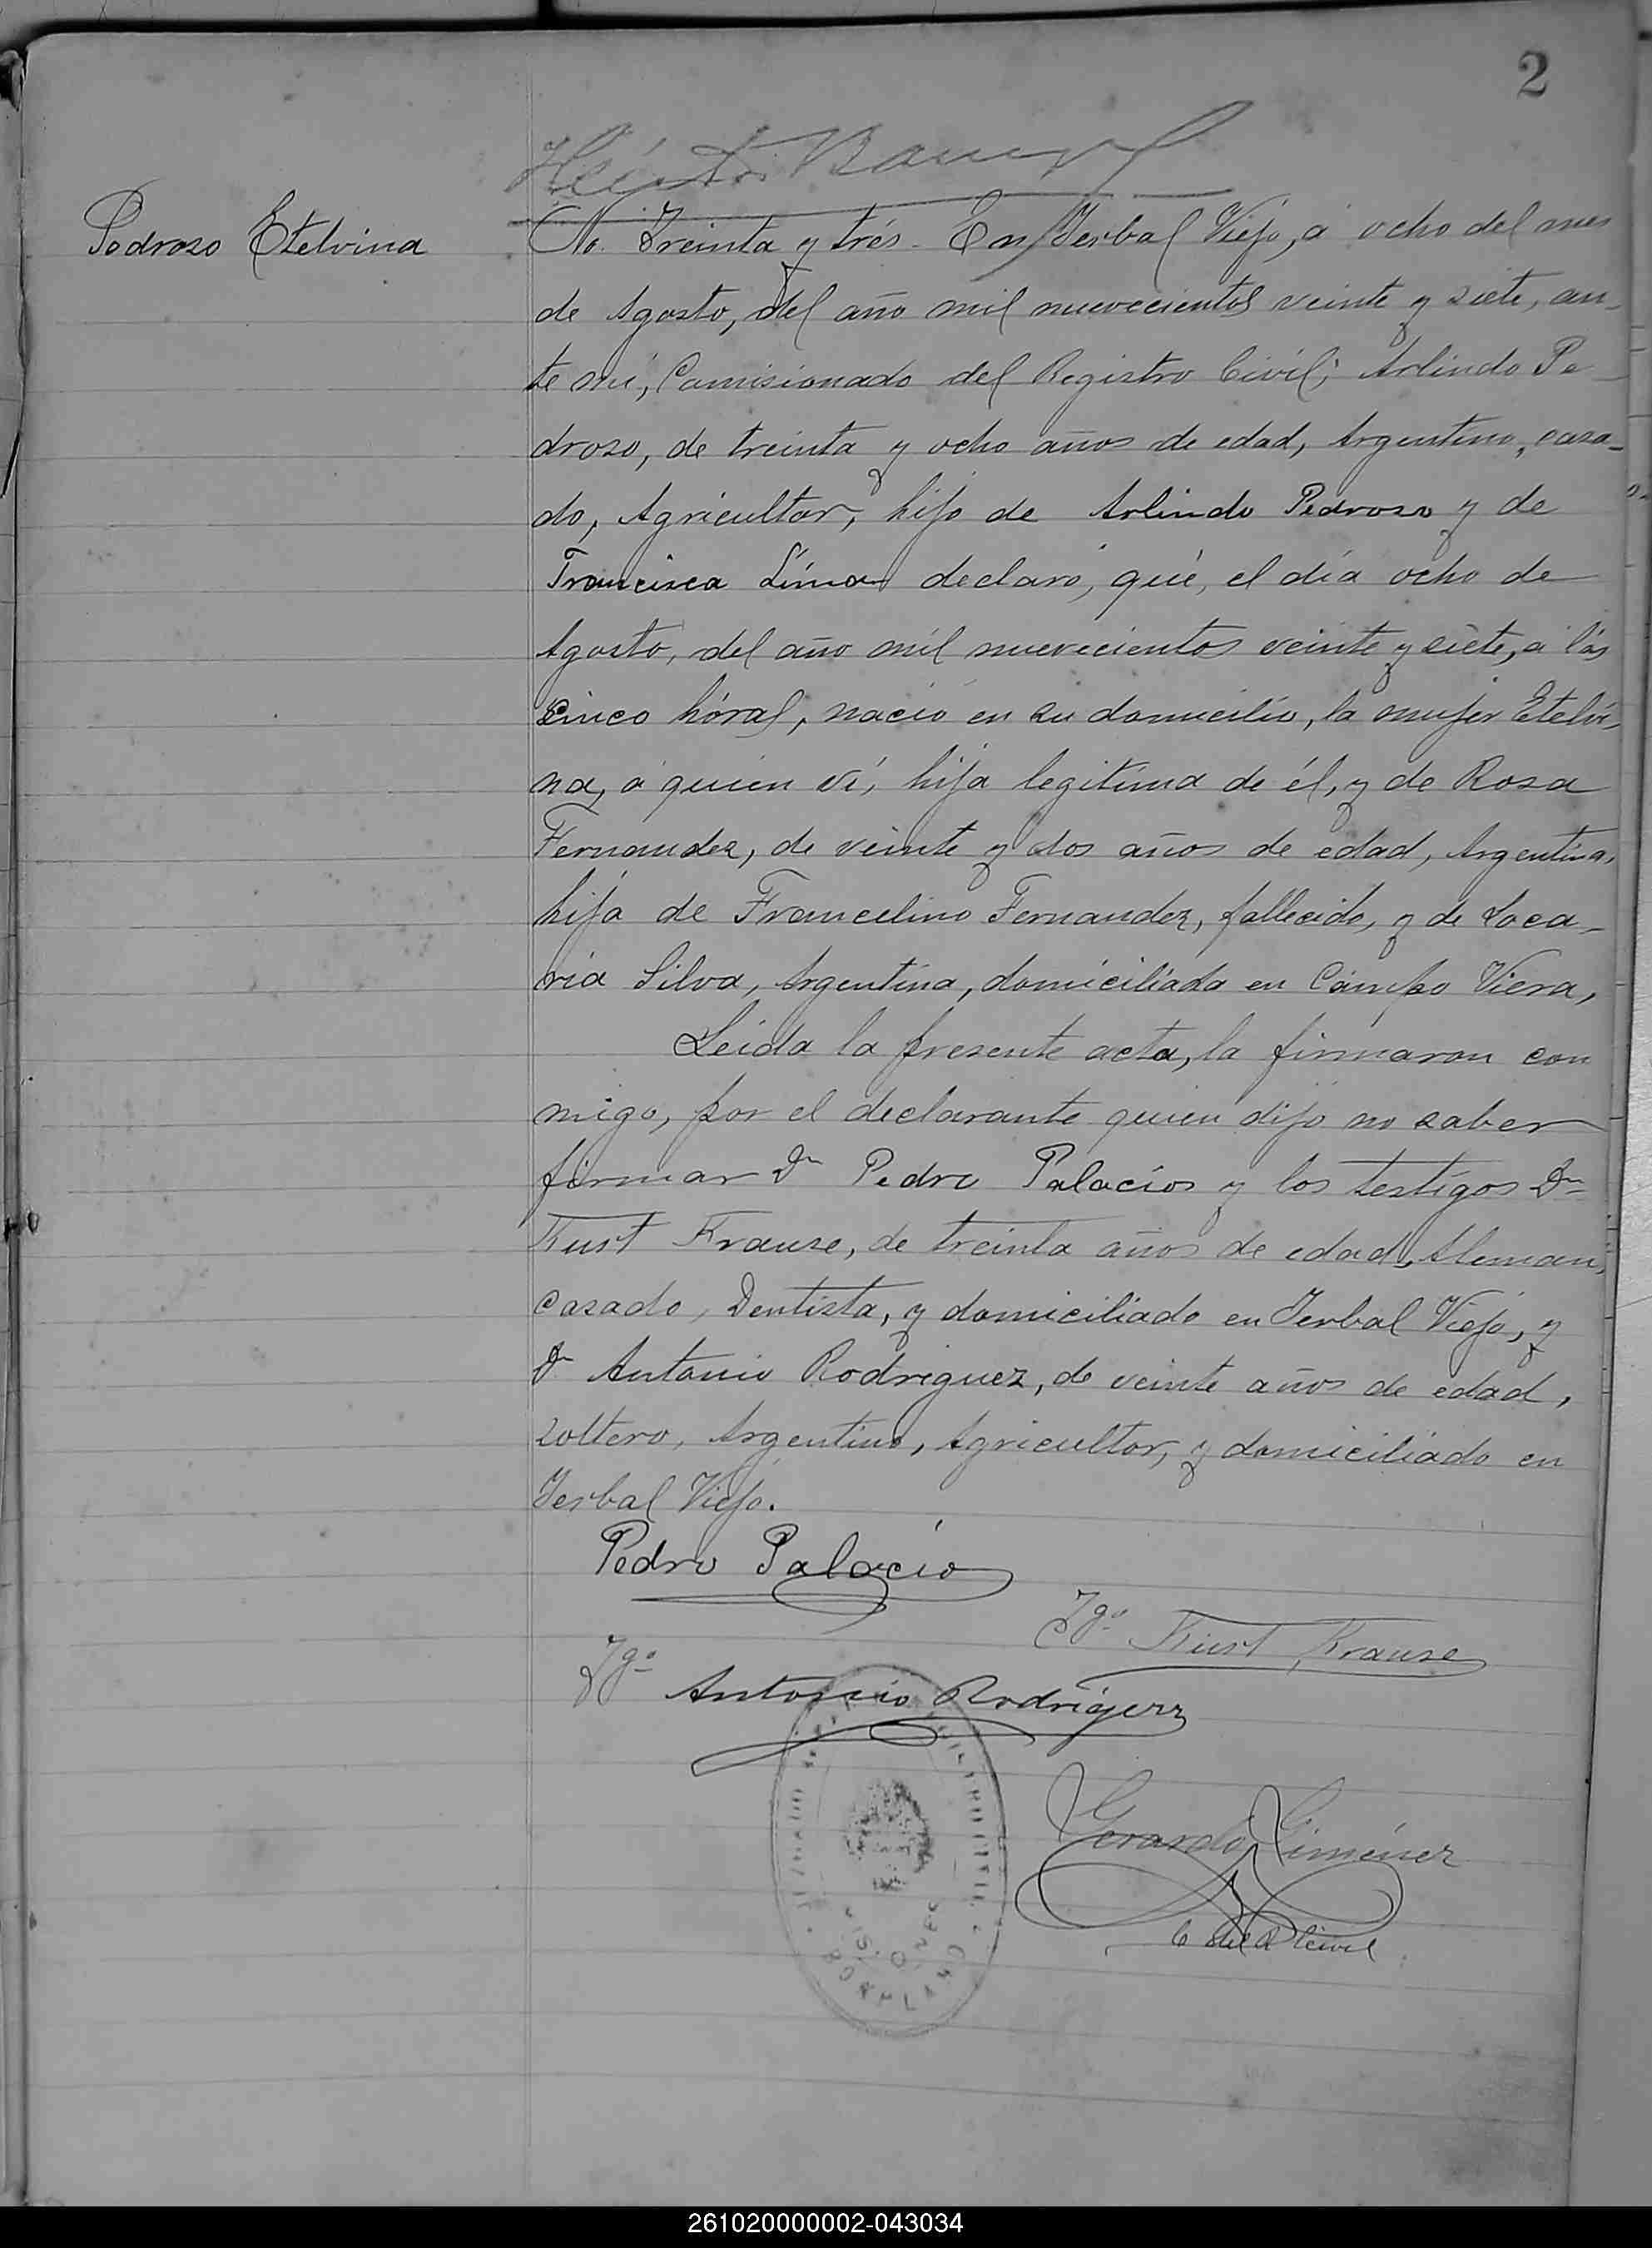 2
Pedrozo Etelvina
No. Treinta y trés. En Yerbal Viejo, á ocho del mes
de Agosto, del año mil nuevecientos veinte y siete, an-
te mí, Comisionado del Registro Civil; Arlindo Pe-
drozo, de treinta y ocho años de edad, Argentino, casa-
do, Agricultor, hijo de Arlindo Pedrozo y de
Francisca Lima declaró, qué, el día ocho de
Agosto, del año mil nuevecientos veinte y siete, a lás
cinco hóras, nació en su domicilio, la mujer Etelvi-
na, á quien ví, hija legitima de él, y de Rosa
Fernandez, de veinte y dos años de edad, Argentina,
hija de Francelino Fernandez, fallecido, y de Loca-
ria Silva, Argentina, domiciliada en Cámpo Viera,
Leida la presente acta, la firmaron con
migo, por el declarante quien dijo no saber
firmar Dn Pedro Palacios y los testigos Dn
Kurt Krause, de treinta años de edad, Aleman,
casado, Dentista, y domiciliado en Yerbal Viejo, y
Dn Antonio Rodriguez, de veinte años de edad,
soltero, Argentino, Agricultor, y domiciliado en
Yerbal Viejo.
Pedro Palacio
Tgo. Kurt Krause
Tgo. Antonio Rodrigerz
Gerardo Giménez
C del R Civil
JUZGADO
MISIONES
BONPLAND
261020000002-043034